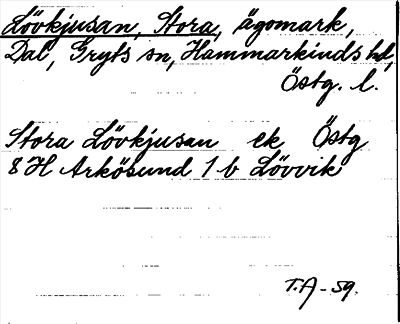 Lövkjusan, Stora, ägomark,
Dal, Gryts sn, Hammarkinds hd,
Östg. l.
Stora Lövkjusan ek Östg
8 H Arkösund 1 b Lövvik
T.A - 59.